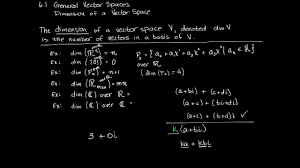 6.1 General Vector Spaces
Dimension of a Vector Space
The dimension of a vector space V, denoted dim V
is the number of vectors in a basis of V.
Ex: dim (ℝⁿ) = n
Ex: dim ({0}) = 0
Ex: dim (Pₙ) = n+1
Ex: dim ( ) = nm
Ex: dim (ℂ) over ℝ =
Ex: dim (ℂ) over ℂ =
P₃ = { a₀ + a₁x¹ + a₂x² + a₃x³ | aₖ ∈ ℝ }
over ℝ
(dim (P₃) = 4)
(a+bi) + (c+di)
(a+c) + (bi+di)
(a+c) + (b+d)i ✓
k(a+bi)
ka + kbi
3 + 0i